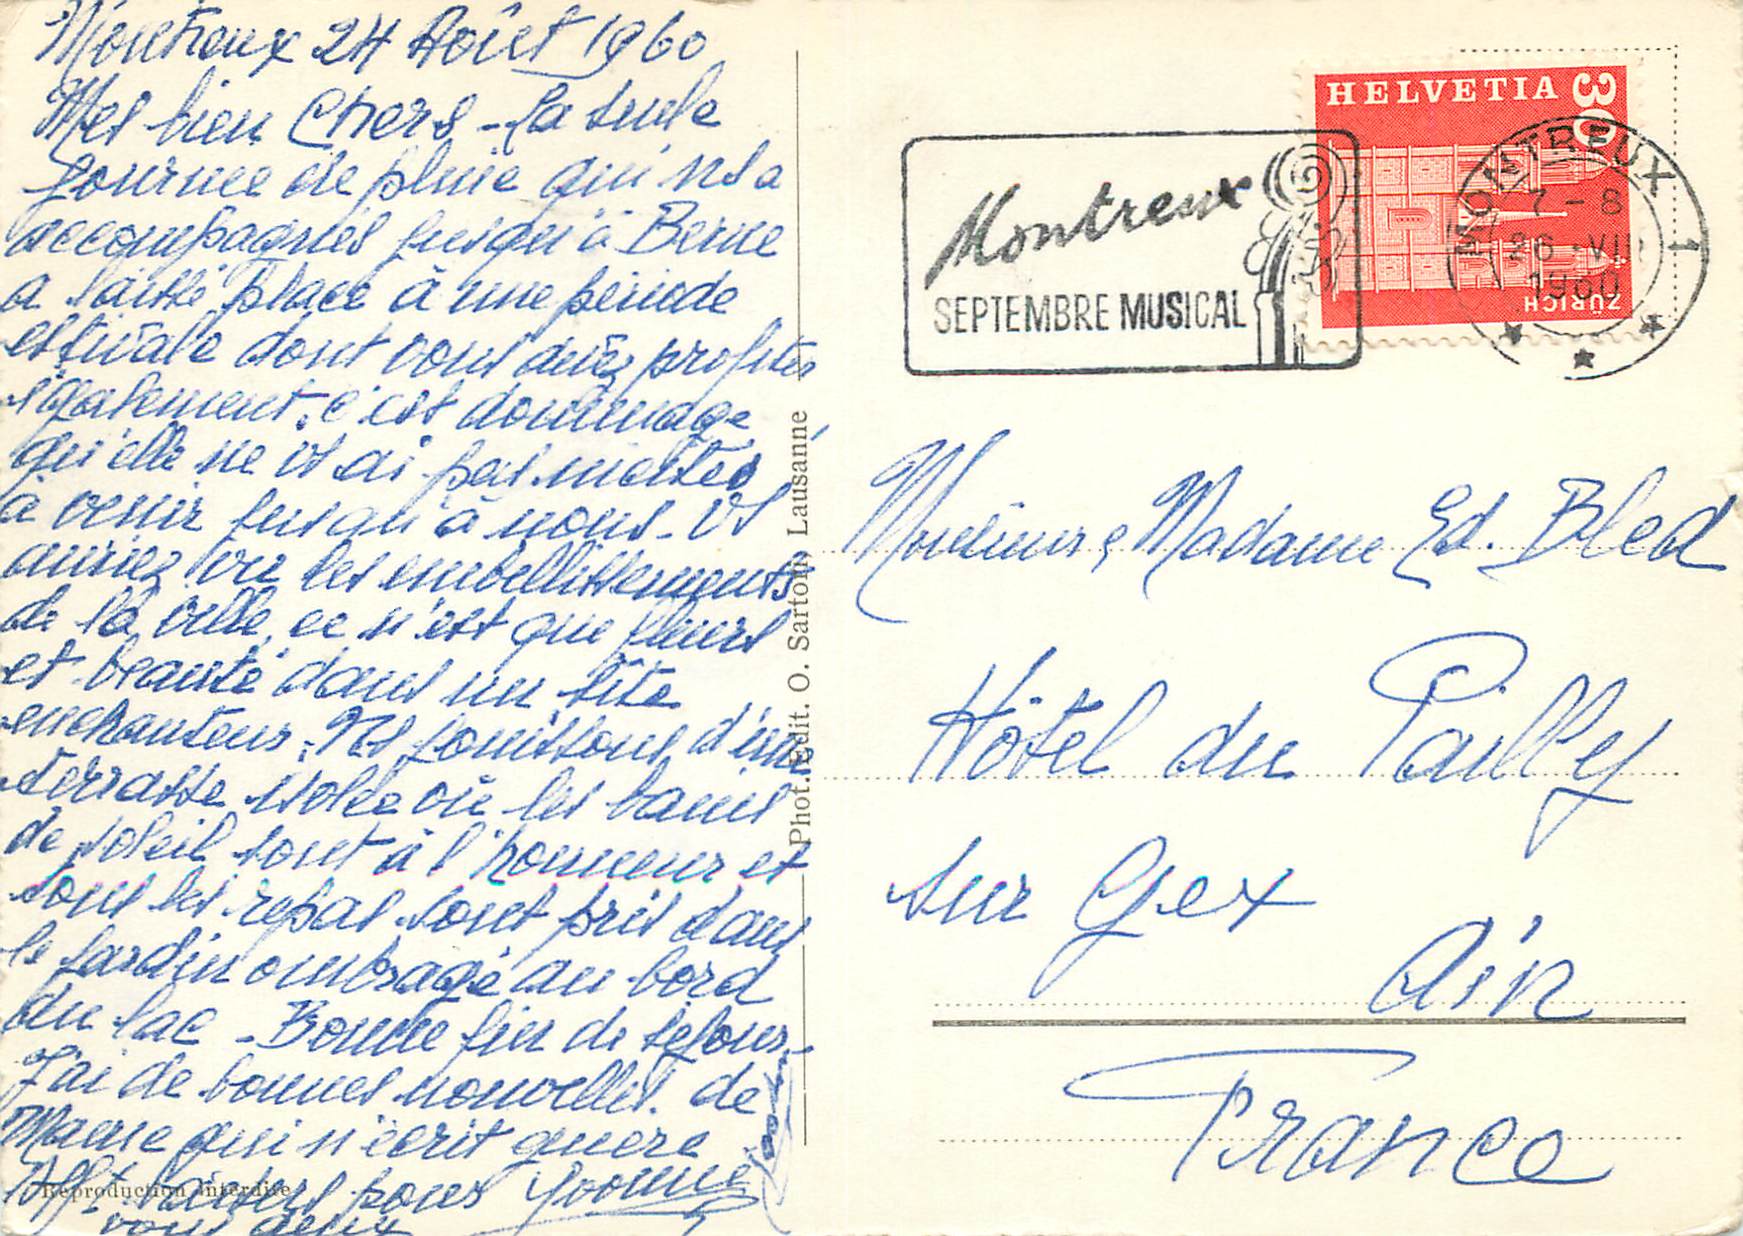 Montreux 24 Août 1960
Mes bien Chers - La seule
journée de pluie qui ns a
accompagnés jusqu'à Berne
a laissé place à une période
estivale dont vous avez profité
également, c'est dommage
qu'elle ne vs ai pas incités
à venir jusqu'à nous - Vs
auriez vu les embellissements
de la ville, ce n'est que fleurs
et beauté dans un site
enchanteur. Ns jouissons d'une
terrasse isolée où les bains
de soleil sont à l'honneur et
tous les repas sont pris dans
le jardin ombragé au bord
du lac - Bonne fin de séjour -
J'ai de bonnes nouvelles de
qui n'écrit guère
Afft baisers pour Yvonne
vous deux
Reproduction interdite
Phot. Edit. O. Sartori, Lausanne
Montreux
SEPTEMBRE MUSICAL
HELVETIA 30
ZÜRICH
MONTREUX 1
7-8
26 VIII
1960
Monsieur & Madame Ed. Bled
Hôtel du Pailly
sur Gex
Ain
France